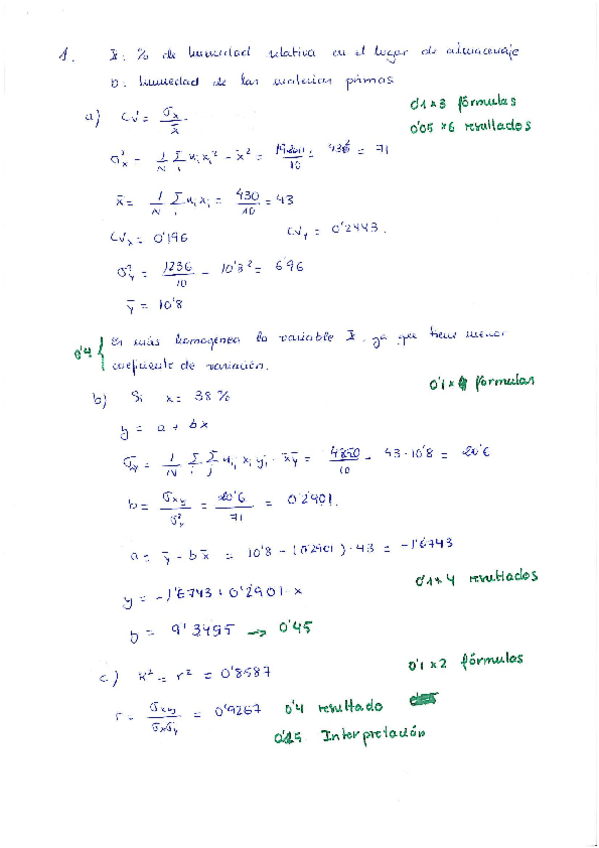 1. X: % de humedad relativa en el lugar de almacenaje
D: humedad de las materias primas
0'1 x 3 fórmulas
a) CV = σx / x̄
0'05 x 6 resultados
σ²x = 1/N Σi ni xi² - x̄² = /10 - 43² = 71
x̄ = 1/N Σi ni xi = 430/10 = 43
CVx = 0'196 CVy = 0'2443.
σ²y = 1236/10 - 10'8² = 6'96
ȳ = 10'8
0'4 { Es más homogénea la variable X, ya que tiene menor
coeficiente de variación.
0'1 x 4 fórmulas
b) Si x = 38 %
y = a + bx
σxy = 1/N Σi Σj nij xi yj - x̄ȳ = 4850/10 - 43 · 10'8 = 20'6
b = σxy / σ²x = 20'6 / 71 = 0'2901.
a = ȳ - bx̄ = 10'8 - (0'2901) · 43 = -1'6743
0'1 x 4 resultados
y = -1'6743 + 0'2901 · x
y = 9'3495 → 0'45
0'1 x 2 fórmulas
c) R² = r² = 0'8587
r = σxy / σxσy = 0'9267 0'4 resultado
0'25 Interpretación